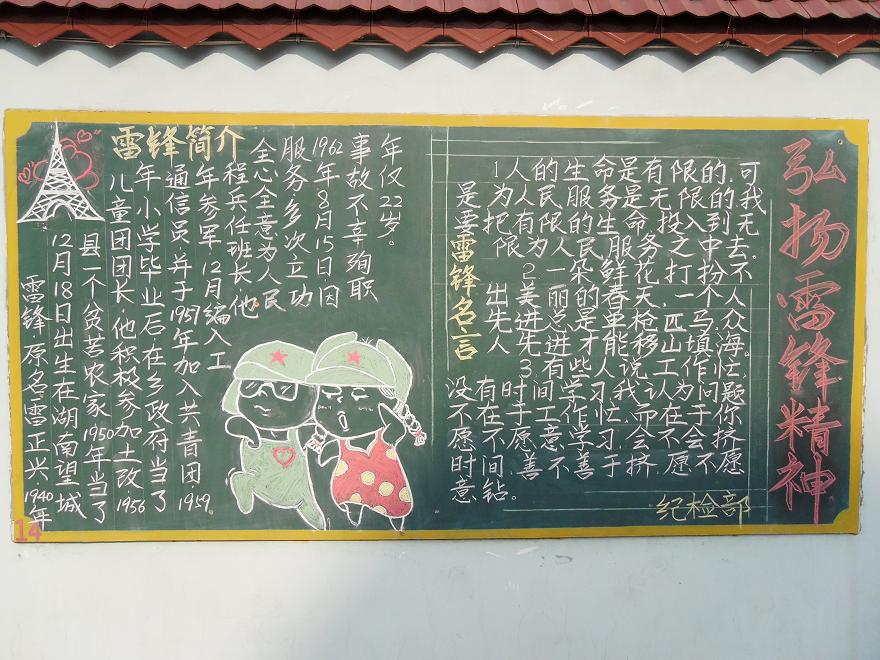 弘扬雷锋精神
雷锋简介
雷锋原名雷正兴1940年
12月18日出生在湖南望城
县一个贫苦农家1950年当了
儿童团团长.他积极参加土改.1956
年小学毕业后在乡政府当了
通信员并于1957年加入共青团.1959
年参军12月编入工
程兵任班长.他
全心全意为人民
服务多次立功
1962年8月15日因
事故不幸殉职
年仅22岁。
雷锋名言
1人的生命是有限的,可
是为人民服务是无限的,我
要把有限的生命投入到无
限为人民服务之中去.
2一朵鲜花打扮不
出美丽的春天,一个人
先进总是单枪匹马,众
人先进才能移山填海.
3.有些人说工作忙,
没有时间学习,我认为问题
不在于工作忙,而在于你
愿不愿意学习,会不会挤
时间善不善于挤愿不愿
意钻。
纪检部
14